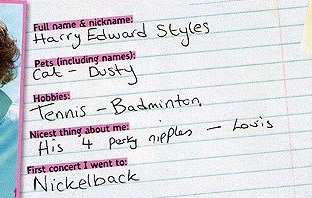 Full name & nickname:
Harry Edward Styles
Pets (including names):
Cat - Dusty
Hobbies:
Tennis - Badminton,
Nicest thing about me:
His 4 perky nipples - Louis
First concert I went to:
Nickelback